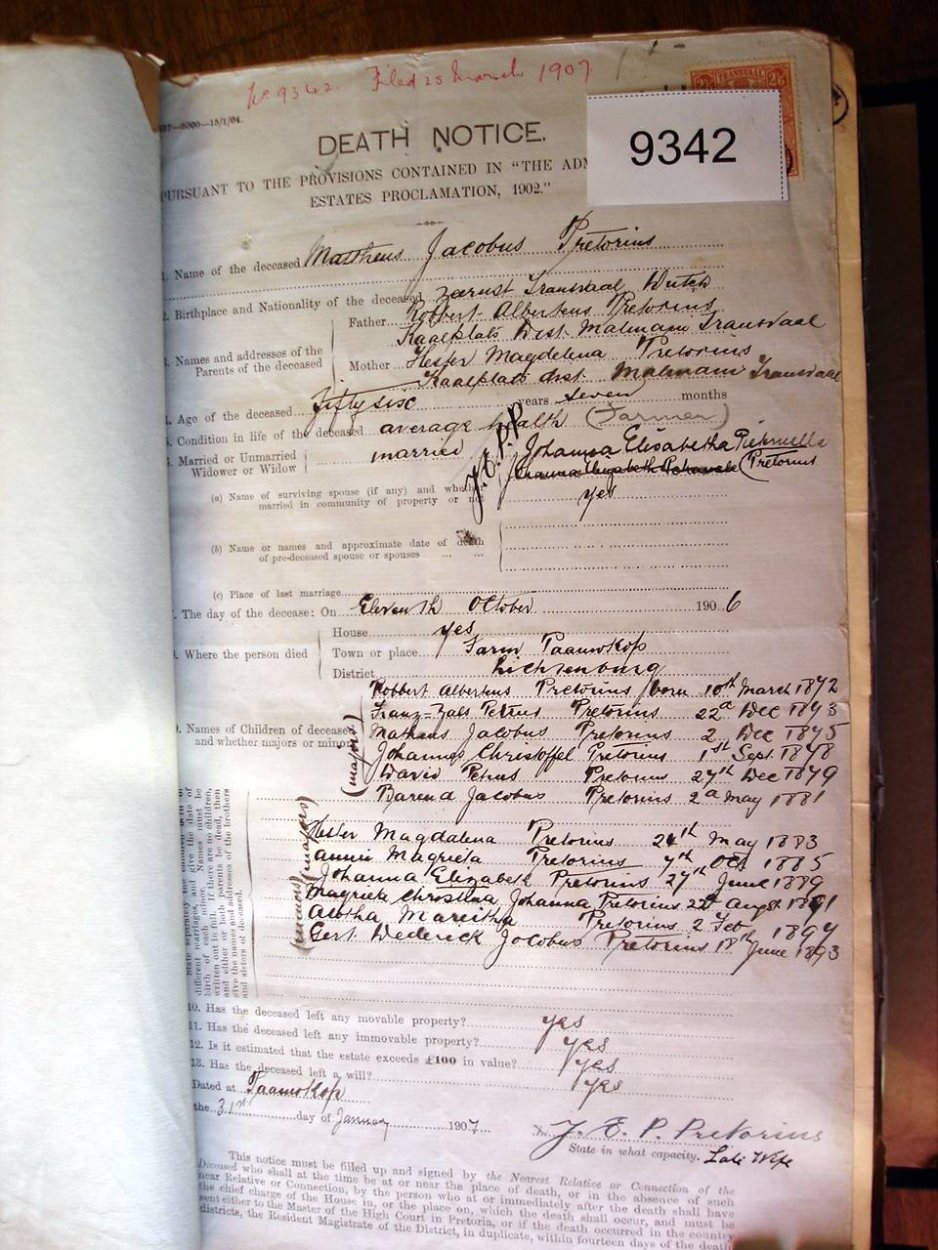 No 9342. Filed 25 March 1907
9342
TRANSVAAL
2/6 2/6
—5000—15/1/04.
DEATH NOTICE.
PURSUANT TO THE PROVISIONS CONTAINED IN "THE ADM
ESTATES PROCLAMATION, 1902."
1. Name of the deceased Mattheus Jacobus Pretorius
2. Birthplace and Nationality of the deceased Zeerust Transvaal Dutch
3. Names and addresses of the Parents of the deceased
Father Robbert Albertens Pretorius
Kaalplats Dist. Malmani Transvaal
Mother Hester Magdelena Pretorius
Kaalplats dist Malmani Transvaal
4. Age of the deceased fifty six years seven months
5. Condition in life of the deceased average health (Farmer)
6. Married or Unmarried Widower or Widow married
J.E.P.P
(a) Name of surviving spouse (if any) and whether married in community of property or not
Johanna Elisabetha Pretorius
yes
(b) Name or names and approximate date of death of pre-deceased spouse or spouses
(c) Place of last marriage
The day of the decease: On Eleventh October 1906
8. Where the person died
House yes
Town or place Farm Paamokop
District Lichtenburg
9. Names of Children of deceased and whether majors or minors
(majors)
Robbert Albertens Pretorius born 10th March 1872
Petrus Pretorius 22d Dec 1873
Matheus Jacobus Pretorius 2 Dec 1875
Johannes Christoffel Pretorius 1st Sept. 1878
David Petrus Pretorius 27th Dec 1879
Barend Jacobus Pretorius 2d May 1881
(majors)
Hester Magdalena Pretorius 24th May 1883
Annie Magrieta Pretorius 7th Oct 1885
(minors)
Johanna Elizabeth Pretorius 27th June 1889
Magrieta Christina Johanna Pretorius 22d Augst 1891
Pretorius 2 Feb 1894
Gert Dederick Jacobus Pretorius 18th June 1893
State separately the children born of different marriages, and give the date of birth of each minor. Names must be written out in full. If there are no children, and either or both parents be dead, then give the names and addresses of the brothers and sisters of deceased.
10. Has the deceased left any movable property? yes
11. Has the deceased left any immovable property? yes
12. Is it estimated that the estate exceeds £100 in value? yes
13. Has the deceased left a will? yes
Dated at Paamokop
the 31st day of January 1907.
J. E. P. Pretorius
State in what capacity. Late Wife
This notice must be filled up and signed by the Nearest Relative or Connection of the
Deceased who shall at the time be at or near the place of death, or in the absence of such
near Relative or Connection, by the person who at or immediately after the death shall have
the chief charge of the House in, or the place on, which the death shall occur, and must be
sent either to the Master of the High Court in Pretoria, or if the death occurred in the country
districts, the Resident Magistrate of the District, in duplicate, within fourteen days of the death